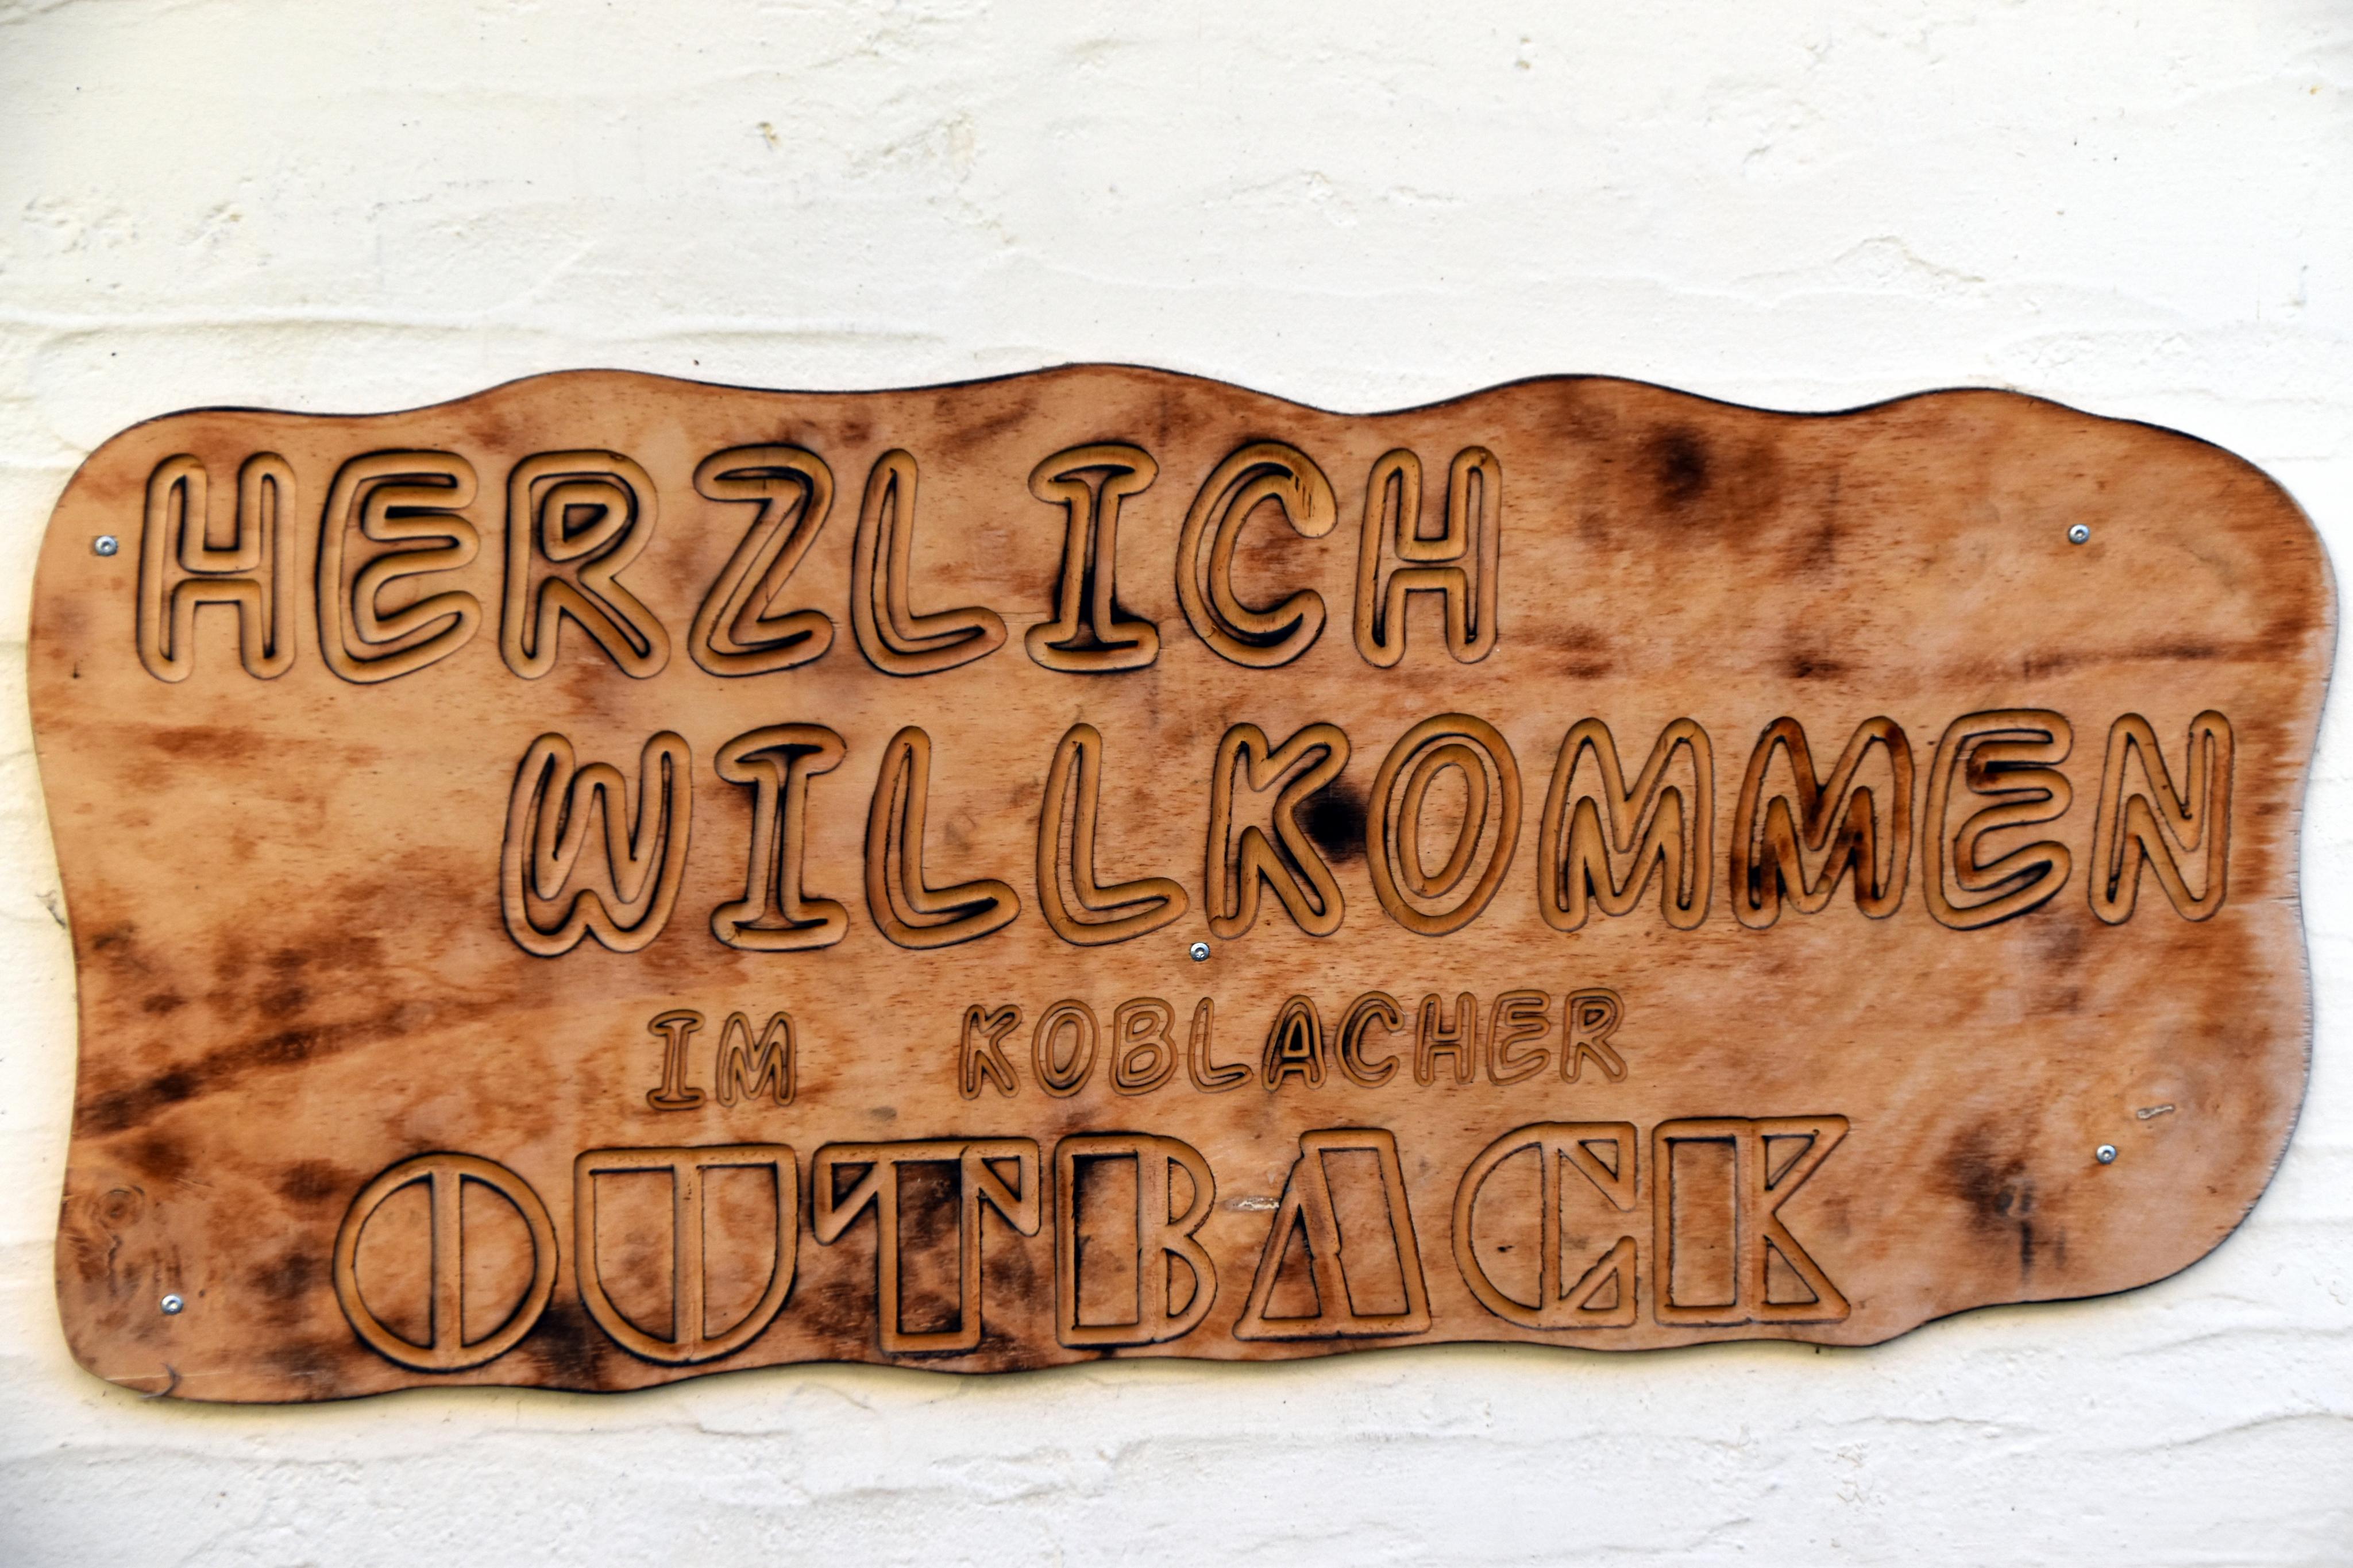 HERZLICH
WILLKOMMEN
IM KOBLACHER
OUTBACK